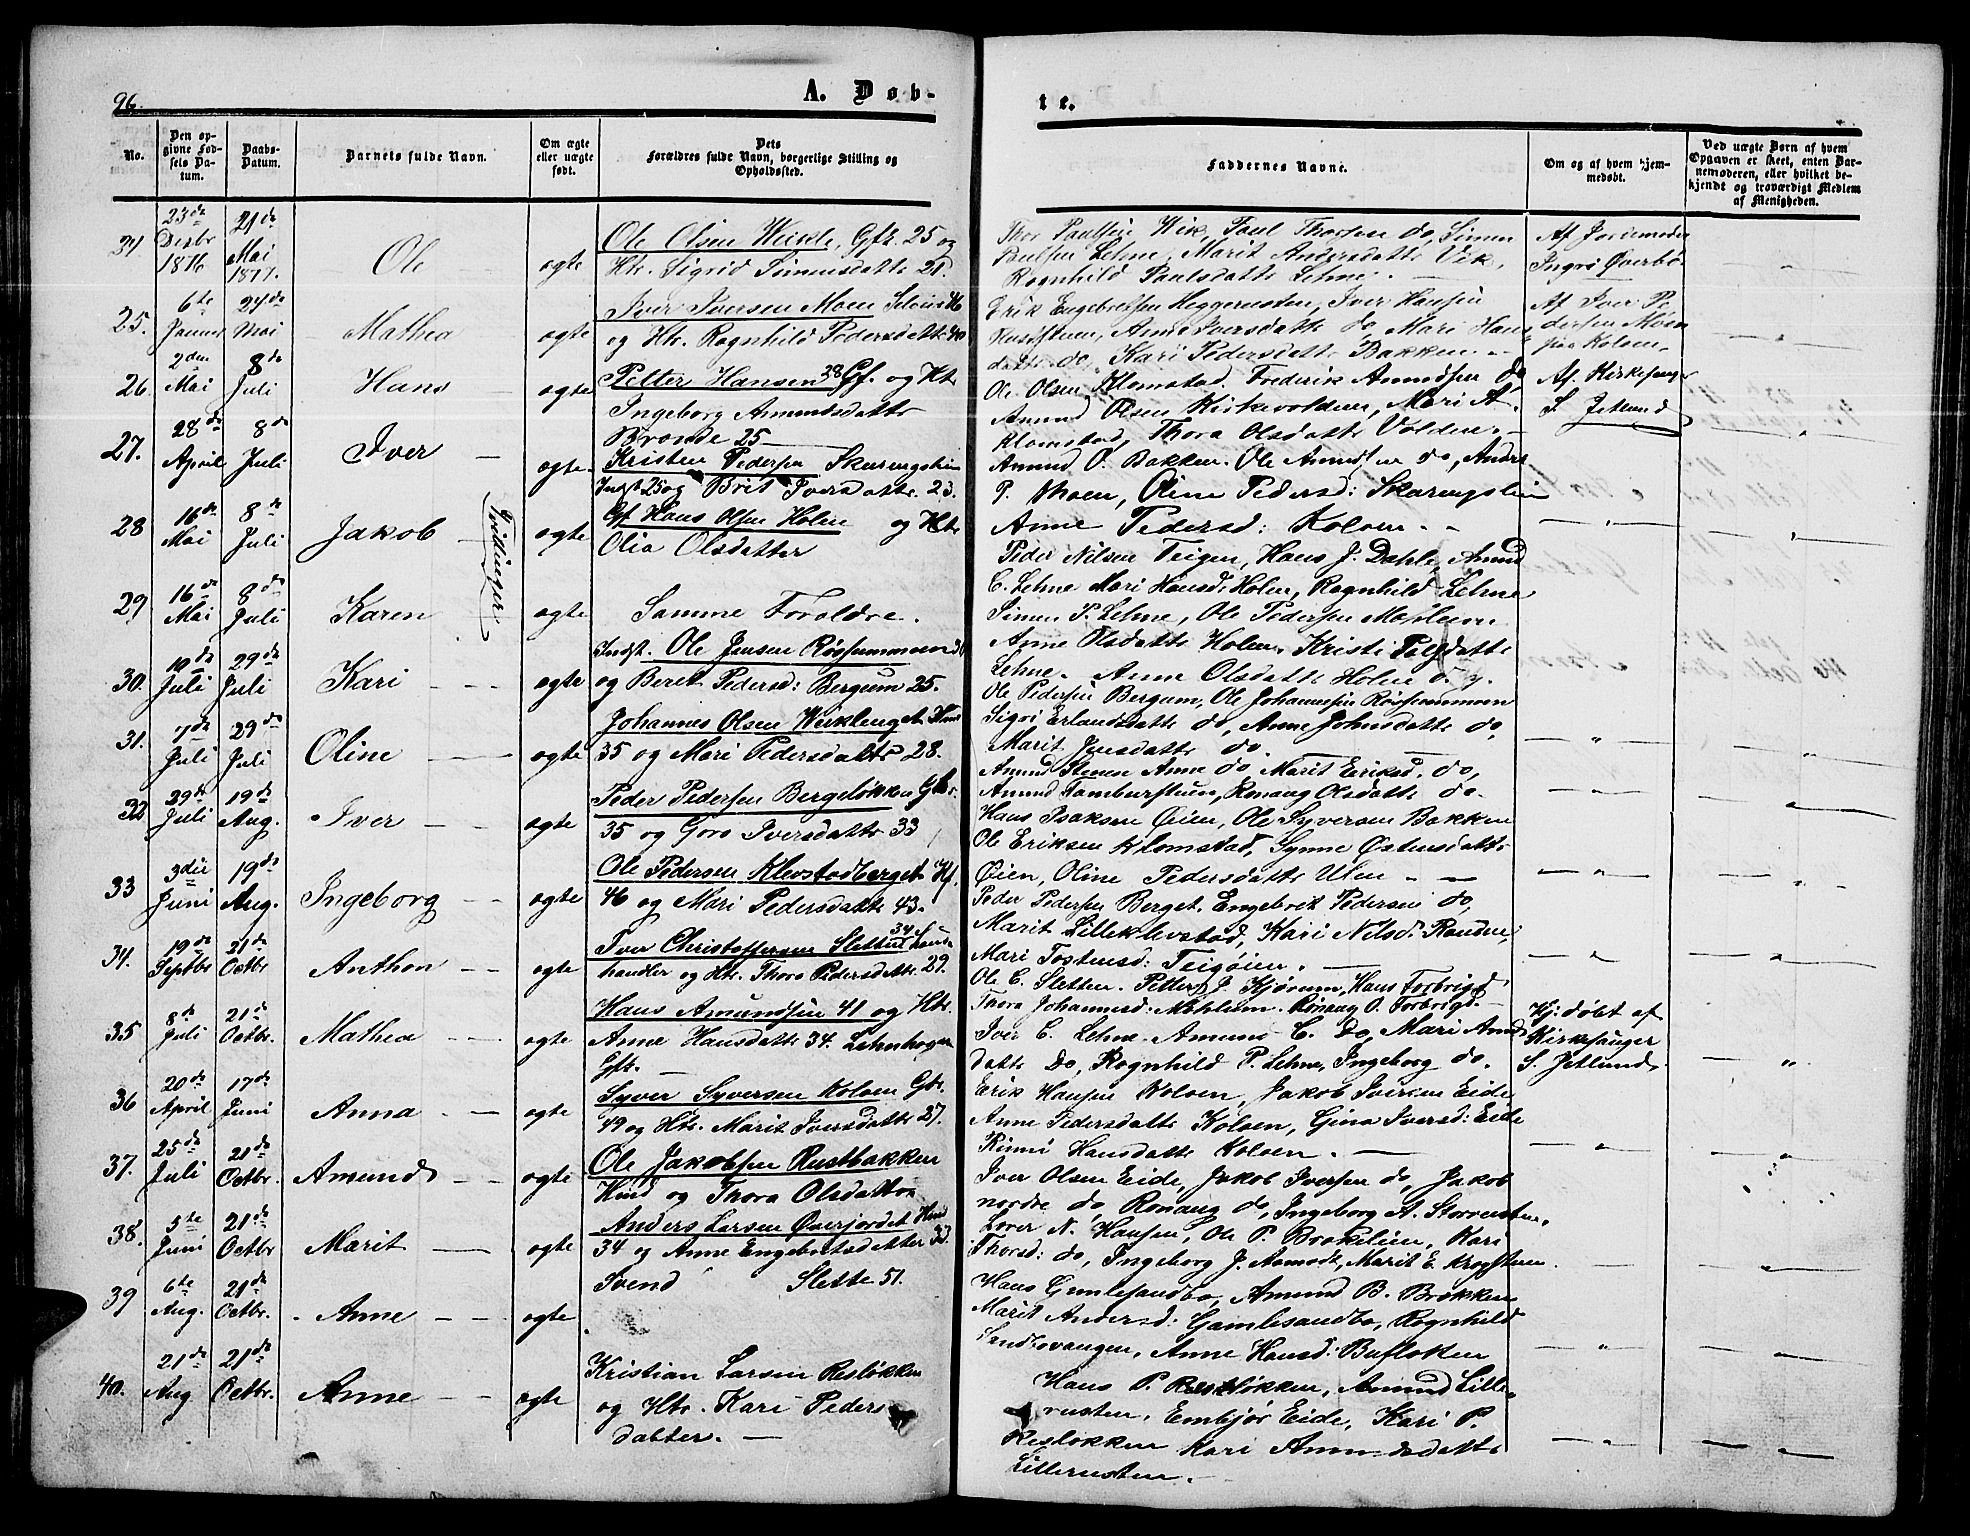 96.
A. Døb-
te.
No.
Den opgivne Fødsels Datum.
Daabs-Datum.
Barnets fulde Navn.
Om ægte eller uægte født.
Dets Forældres fulde Navn, borgerlige Stilling og Opholdssted.
Faddernes Navne.
Om og af hvem hjemmedøbt.
Ved uægte Børn af hvem Opgaven er skeet, enten Barnemoderen, eller hvilket bekjendt og troværdigt Medlem af Menigheden.
23de Decbr 1876
21de Mai 1877.
Ole
ægte
Ole Olsen Wikle, Gfr. 25 og
Htr. Sigrid Simensdattr 21.
Thor Paulsen Wik, Paul Thorsen do, Simen
Paulsen Lehne, Marit Andersdattr Vik,
Rognhild Paulsdattr Lehne. —
Af Jordemoder
Ingri Øverbø.
25.
6te Januar
21de Mai
Mathea
ægte
Iver Iversen Moen
og Htr. Rognhild Pedersdattr 40
Erik Engebretsen Heggerusten, Iver Hansen
Rusehsten, Anne Iversdattr do, Mari Hans
dattr do, Kari Pedersdattr Bakken.
Af Iver Pe
dersen Moen
paa Kolven.
26
2den Mai
8de Juli
Hans
ægte
Petter Hansen 28 Gf. og Htr
Ingeborg Amundsdattr
Ole Olsen Klomstad. Frederik Amundsen do
Amund Olsen Kirkevolden, Mari A.
Klomstad, Thora Olsdattr Volden. —
Af. Kirkesanger
S. Jetlund
27.
28de April
8de Juli
Iver
ægte
Kristen Pedersen
Indst 25 og Brit Iversdattr. 23.
Amund O. Bakken. Ole Amundsen do, Anders
P. Moen, Oline Pedersd: Skaringslien
Anne Pedersd: Kolven.
28
16de Mai
8de Juli
Jakob
Tvillinger
ægte
Gf Hans Olsen Holen og Htr
Olia Olsdatter
Peder Nilsen Teigen, Hans J. Dahle, Amund
C. Lehne Mari Hansd: Holen, Rognhild Lehne
29
16de Mai
8de Juli
Karen
ægte
Samme Foroldre.
Simen P. Lehne, Ole Pedersen
Anne Olsdattr Holen, Kristi
Lehne. Anne Olsdattr Holen
30.
10de Juli
29de Juli
Kari
ægte
Indst. Ole Jensen Røssummoen
og Beret Pedersd: Bergum 25.
Ole Pedersen Bergum, Ole Johannesen Røssummoen
Sigri Erlandsdattr do, Anne Johnsdattr do
Marit Jensdattr do.
31.
7de Juli
29de Juli
Oline
ægte
Johannes Olsen
35 og Mari Pedersdattr 28.
Amund Steenen Anne do, Marit Eriksd. do,
Amund Tamburstuen, Ronaug Olsdattr do.
32
29de Juli
19de Aug.
Iver
ægte
Peder Pedersen Bergeløkken Gbr.
35 og Goro Iversdattr 33
Hans Isaksen Øien, Ole Syversen Bakken
Ole Eriksen Klomstad, Synne Østensdattr
Øien, Oline Pedersdattr Ulen
33
3die Juni
19de Aug.
Ingeborg
ægte
Ole Pedersen Klevstadberget Hf.
46 og Mari Pedersdattr 43.
Peder Pedersen Berget. Engebret Pedersen do,
Marit Lilleklevstad, Kari Nilsd. Randen,
Mari Tostensd: Teigøien.
34.
19de Septbr
21de Octbr
Anthon
ægte
Iver Christoffersen Sletten 34
handler og Htr. Thora Pedersdattr. 29.
Ole C. Sletten. Petter J. Kjørum, Hans Forbrigd
Thora Johannesd: Mæhlum. Rønaug O. Forbrigd.
35
8de Juli
21de Octbr.
Mathea
ægte
Hans Amundsen 41 og Htr.
Anne Hansdattr 34. Lehnhogen
Gfr. —
Iver C. Lehne. Amund C. Do, Mari Amds
dattr Do, Rognhild P. Lehne, Ingeborg do.
Hj: døbt af
Kirkesanger
S. Jetlund.
36
20de April
17de Juni
Anna
ægte
Syver Syversen Kolven Gbr.
49 og Htr. Marit Iversdattr 37.
Erik Hansen Kolven, Jakob Iversen Eide
Anne Pedersdattr Kolven, Gina Iversd: Eide
Rinni Hansdattr Kolven.
37.
25de Juli
21de Octbr.
Amund
ægte
Ole Jakobsen Rustbakken
Hmd og Thora Olsdatter
Iver Olsen Eide, Jakob Iversen do, Jakob
nordre do, Ronaug do, Ingeborg A. Storrusten.
38.
5te Juni
21de Octbr
Marit
ægte
Anders Larsen Øverjordet Hmd
34 og Anne Engebretsdatter 33.
N. Hansen, Ole P. Brokelien, Kari
Thorsd: do, Ingeborg J. Aamodt, Marit E. Krogstuen.
39
6te Aug.
21de Octbr.
Anne
ægte
Svend Slette 51.
Hans Gamlesandbo, Amund B. Brokken
Marit Andersd: Gamlesandbo, Rognhild
Sandbovangen, Anne Hansd:
40.
21de Aug
21de Octbr.
Anne
ægte
Kristian Larsen Resløkken
og Htr. Kari Peders
datter. —
Hans P. Resløkken, Amund Lille
rusten, Embjør Eide, Kari P.
Resløkken Kari Amundsdattr
Lillerusten.